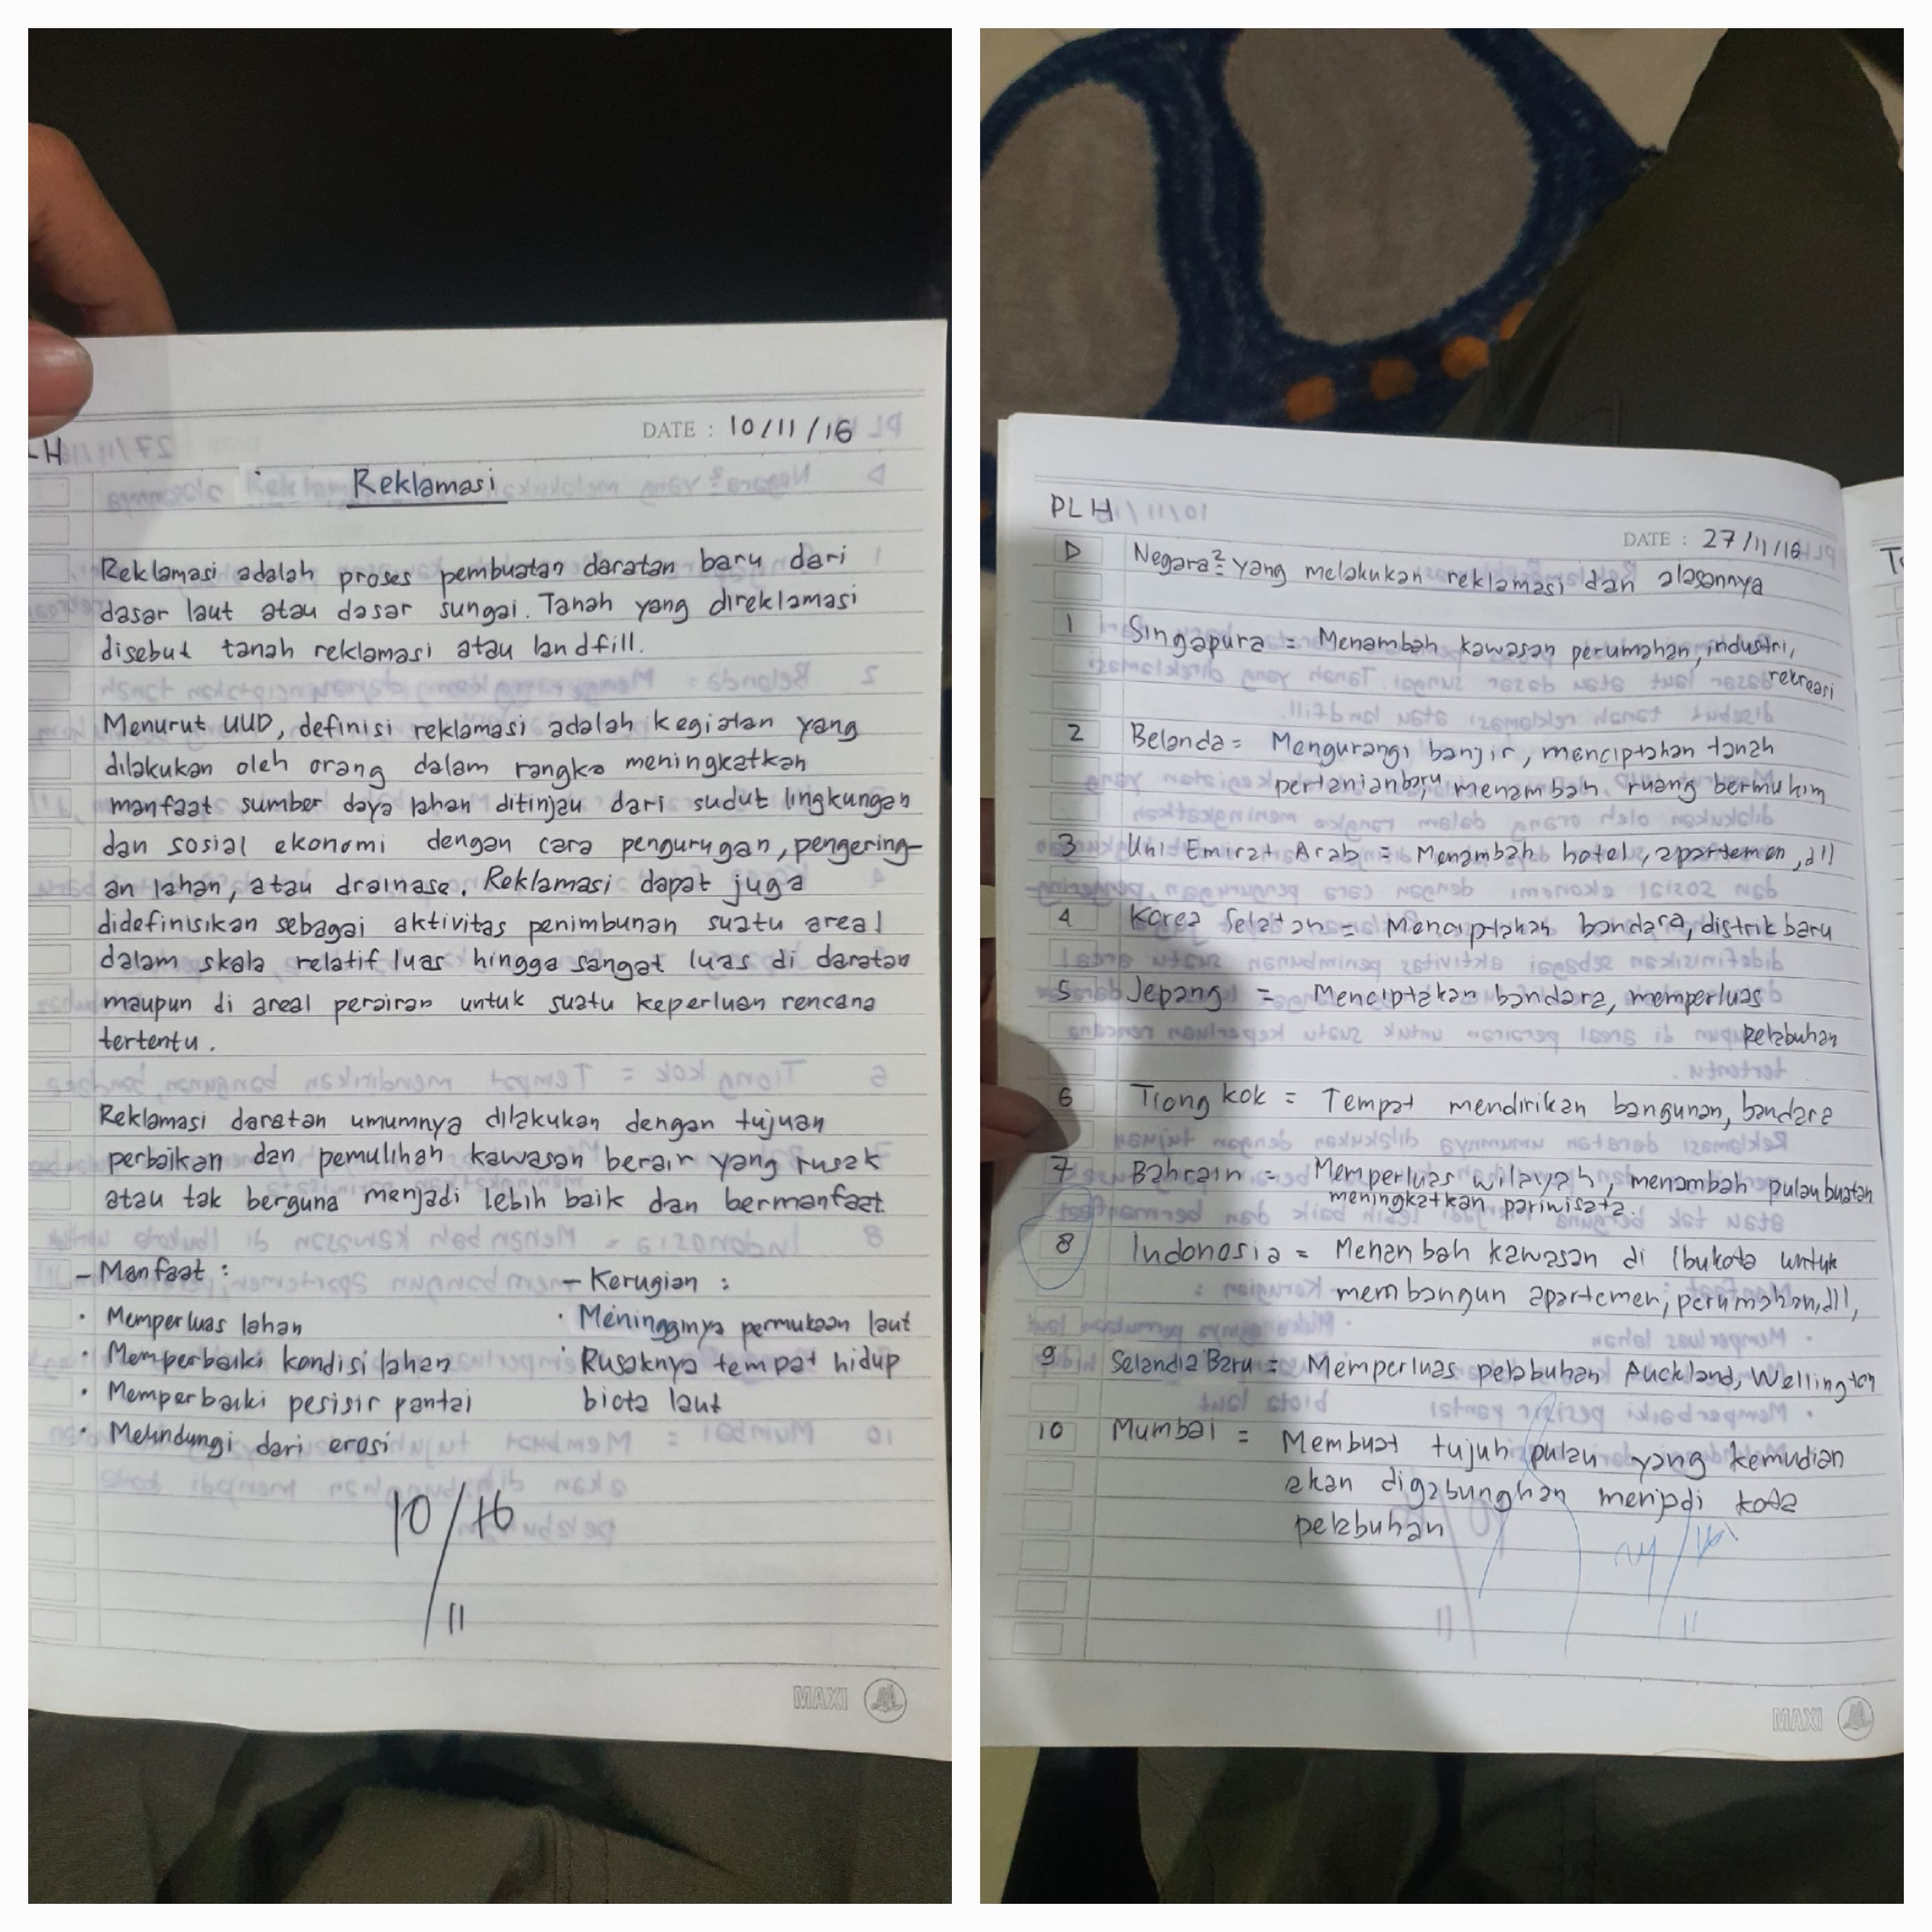 LH
DATE : 10/11/16
Reklamasi
Reklamasi adalah proses pembuatan daratan baru dari
dasar laut atau dasar sungai. Tanah yang direklamasi
disebut tanah reklamasi atau landfill.
Menurut UUD, definisi reklamasi adalah kegiatan yang
dilakukan oleh orang dalam rangka meningkatkan
manfaat sumber daya lahan ditinjau dari sudut lingkungan
dan sosial ekonomi dengan cara pengurugan, pengering-
an lahan, atau drainase. Reklamasi dapat juga
didefinisikan sebagai aktivitas penimbunan suatu areal
dalam skala relatif luas hingga sangat luas di daratan
maupun di areal perairan untuk suatu keperluan rencana
tertentu.
Reklamasi daratan umumnya dilakukan dengan tujuan
perbaikan dan pemulihan kawasan berair yang rusak
atau tak berguna menjadi lebih baik dan bermanfaat.
- Manfaat :
· Memperluas lahan
· Memperbaiki kondisi lahan
· Memperbaiki pesisir pantai
· Melindungi dari erosi
- Kerugian :
· Meningginya permukaan laut
· Rusaknya tempat hidup
biota laut
10/16
11
MAXI
PLH
DATE : 27/11/16
D Negara² yang melakukan reklamasi dan alasannya
1 Singapura = Menambah kawasan perumahan, industri,
rekreasi
2 Belanda = Mengurangi banjir, menciptakan tanah
pertanian baru, menambah ruang bermukim
3 Uni Emirat Arab = Menambah hotel, apartemen, dll
4 Korea Selatan = Menciptakan bandara, distrik baru
5 Jepang = Menciptakan bandara, memperluas
pelabuhan
6 Tiongkok = Tempat mendirikan bangunan, bandara
7 Bahrain = Memperluas wilayah, menambah pulau buatan
meningkatkan pariwisata.
8 Indonosia = Menambah kawasan di Ibukota untuk
membangun apartemen, perumahan, dll,
9 Selandia Baru = Memperluas pelabuhan Auckland, Wellington
10 Mumbai = Membuat tujuh pulau yang kemudian
akan digabungkan menjadi kota
pelabuhan
11
MAXI